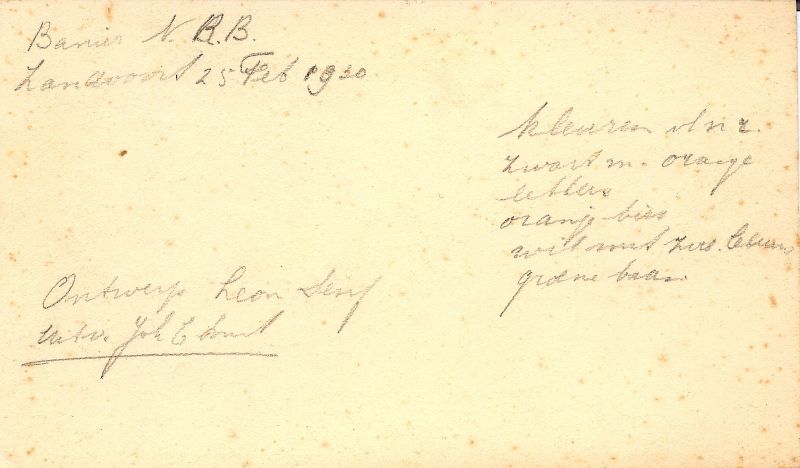 Banier N.R.B.
Zandvoort 25 Feb 1930
Kleuren vlnr.
zwart m. oranje
letters
oranje bies
wit met zw. leeuw
groene baan.
Ontwerp Leon Senf
Uitv. Joh